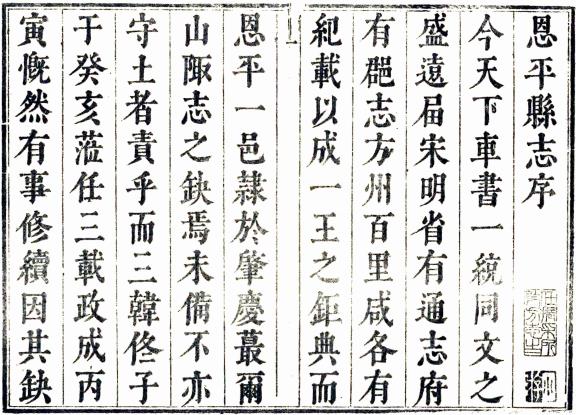 恩平縣志序
今天下車書一統同文之
盛遠届宋明省有通志府
有郡志方州百里咸各有
紀載以成一王之鉅典而
恩平一邑隷於肇慶蕞爾
山陬志之缺焉未備不亦
守土者責乎而三韓佟子
于癸亥蒞任三載政成丙
寅慨然有事修續因其缺